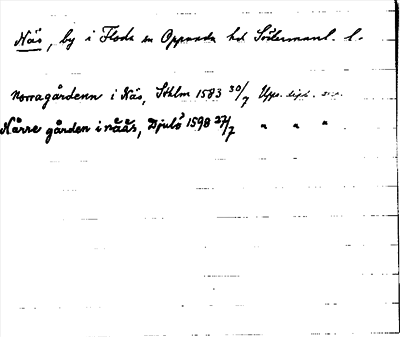 Näs, by i Floda sn Oppunda hd Södermanl. l.
Norragårdenn i Näs, Sthlm 1583 30/7 Upps.
Nårre gården i nääs, Djulö 1598 27/7 " " "